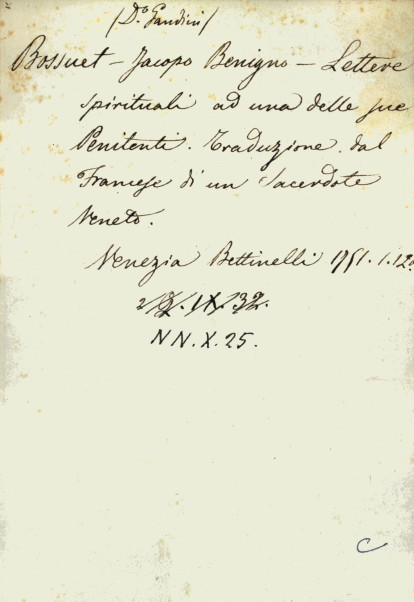 (D.º Gandini)
Bossuet – Jacopo Benigno – Lettere
spirituali ad una delle sue
Penitenti. Traduzione dal
Francese di un Sacerdote
Veneto.
Venezia Bettinelli 1751. 1. 12º
IX.132.
NN.X.25.
C